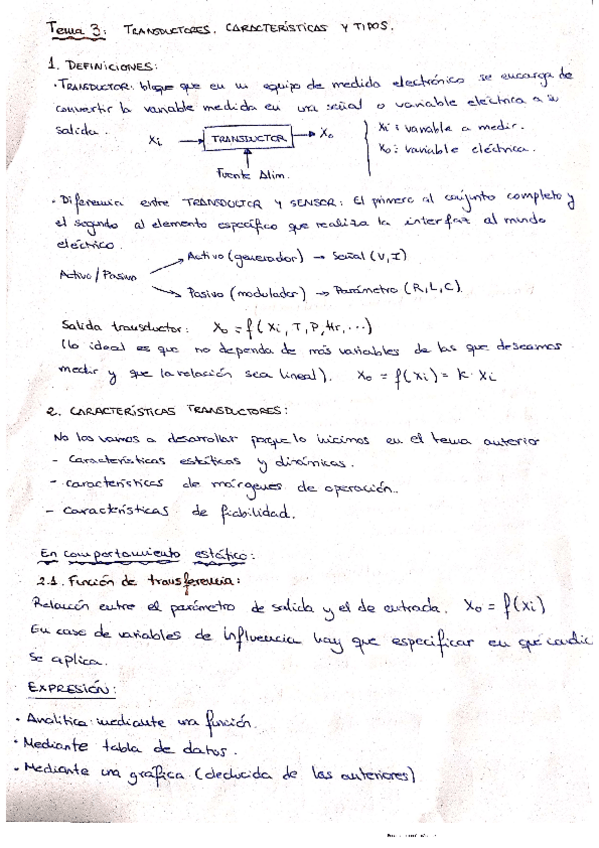 Tema 3: TRANSDUCTORES. CARACTERÍSTICAS Y TIPOS.
1. DEFINICIONES:
· TRANSDUCTOR: bloque que en un equipo de medida electrónico se encarga de
convertir la variable medida en una señal o variable eléctrica a la
salida.
Xi → TRANSDUCTOR → Xo
Fuente Alim.
Xi: variable a medir.
Xo: variable eléctrica.
· Diferencia entre TRANSDUCTOR y SENSOR: El primero al conjunto completo y
el segundo al elemento específico que realiza la interfaz al mundo
eléctrico.
Activo/Pasivo
Activo (generador) → Señal (V, I)
Pasivo (modulador) → Parámetro (R, L, C).
Salida transductor: Xo = f(Xi, T, P, Hr, ...)
(lo ideal es que no dependa de más variables de las que deseamos
medir y que la relación sea lineal). Xo = f(Xi) = k · Xi
2. CARACTERÍSTICAS TRANSDUCTORES:
No los vamos a desarrollar porque lo hicimos en el tema anterior
- Características estáticas y dinámicas.
- características de márgenes de operación.
- características de fiabilidad.
En comportamiento estático:
2.1. Función de transferencia:
Relación entre el parámetro de salida y el de entrada. Xo = f(xi)
En caso de variables de influencia hay que especificar en que condic
se aplica.
EXPRESIÓN:
· Analítica: mediante una función.
· Mediante tabla de datos.
· Mediante una gráfica (deducida de las anteriores)